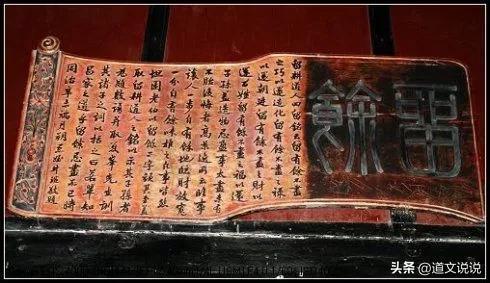 留餘
留耕道人四留銘云留有餘不盡
之巧以還造化留有餘不盡之祿
以還朝廷留有餘不盡之財以
還百姓留有餘不盡之福以還
子孫蓋造物忌盈事太盡未有
不貽後悔者高景逸所云臨事
讓人一步自有餘地臨財放寬
一分自有餘味推之凡事皆然
坦園老伯以留餘二字顏其堂蓋
取留耕道人之銘以示其子孫者
為題數語並取夏峰先生訓
其諸子之詞以括之曰若輩知
昌家之道乎留餘忌盡而已時
同治辛未端月朔愚侄牛瑄敬題
头条 @道文说说